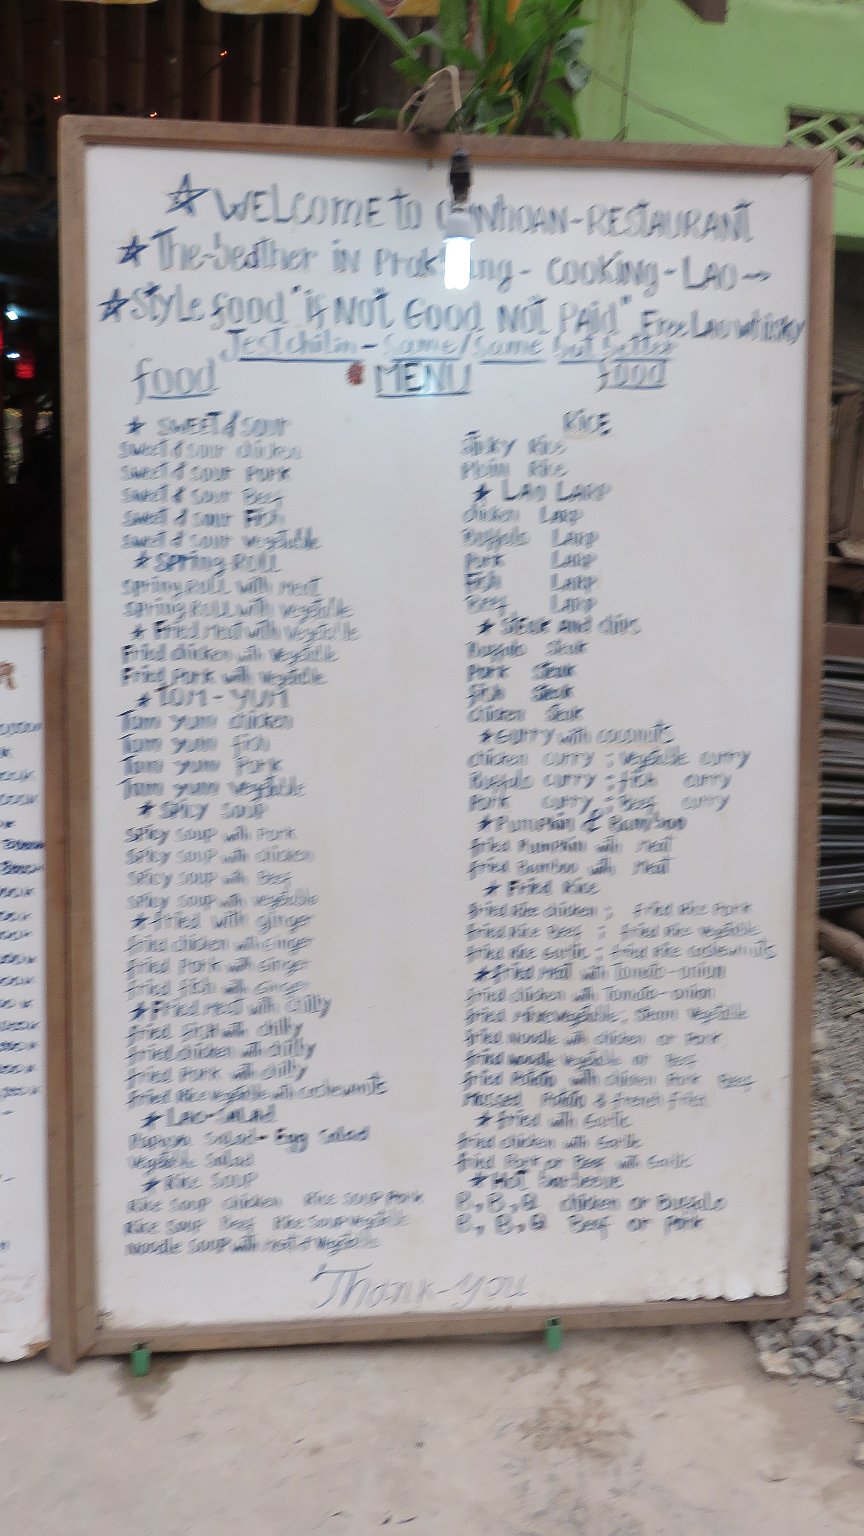 WELCOME to -RESTAURANT
The- in - COOKING-LAO
Style food "if NOT GOOD NOT PAID" Free Lao whisky
Same/Same but better
food MENU food
SWEET & SOUR
Sweet & sour chicken
Sweet & sour Pork
Sweet & sour Beef
Sweet & sour Fish
Sweet & sour vegetable
Spring ROLL
Spring ROLL with meat
Spring ROLL with vegetable
Fried meat with vegetable
Fried chicken with vegetable
Fried Pork with vegetable
TOM-YUM
Tom yum chicken
Tom yum fish
Tom yum Pork
Tom yum vegetable
SPICY SOUP
SPicy soup with Pork
SPicy soup with chicken
SPicy soup with Beef
SPicy soup with vegetable
fried with ginger
fried chicken with ginger
fried Pork with ginger
fried fish with ginger
Fried meat with chilly
fried fish with chilly
fried chicken with chilly
fried Pork with chilly
fried Rice vegetable with cashewnuts
LAO-SALAD
Papaya Salad- Egg Salad
vegetable Salad
RICE SOUP
Rice soup chicken Rice soup Pork
Rice soup Beef Rice soup vegetable
Noodle soup with meat & vegetable
RICE
Sticky Rice
Plain Rice
LAO LARP
chicken LARP
Buffalo LARP
Pork LARP
Fish LARP
Beef LARP
STEUK AND chips
Buffalo steuk
Pork steuk
fish steuk
chicken steuk
curry with coconuts
chicken curry ; vegetable curry
Buffalo curry ; fish curry
Pork curry ; Beef curry
Pumpkin & Bamboo
fried Pumpkin with meat
fried Bamboo with meat
Fried Rice
fried Rice chicken ; fried Rice Pork
fried Rice Beef ; fried Rice vegetable
fried Rice Garlic ; fried Rice cashewnuts
fried meat with Tomato-onion
fried chicken with Tomato-onion
fried vegetable, Steam vegetable
fried noodle with chicken or Pork
fried noodle vegetable or Beef
fried Potato with chicken Pork Beef
Massed Potato & french fried
fried with Garlic
fried chicken with Garlic
fried Pork or Beef with Garlic
HOT
B, B, Q chicken or Buffalo
B, B, Q Beef or Pork
Thank-you